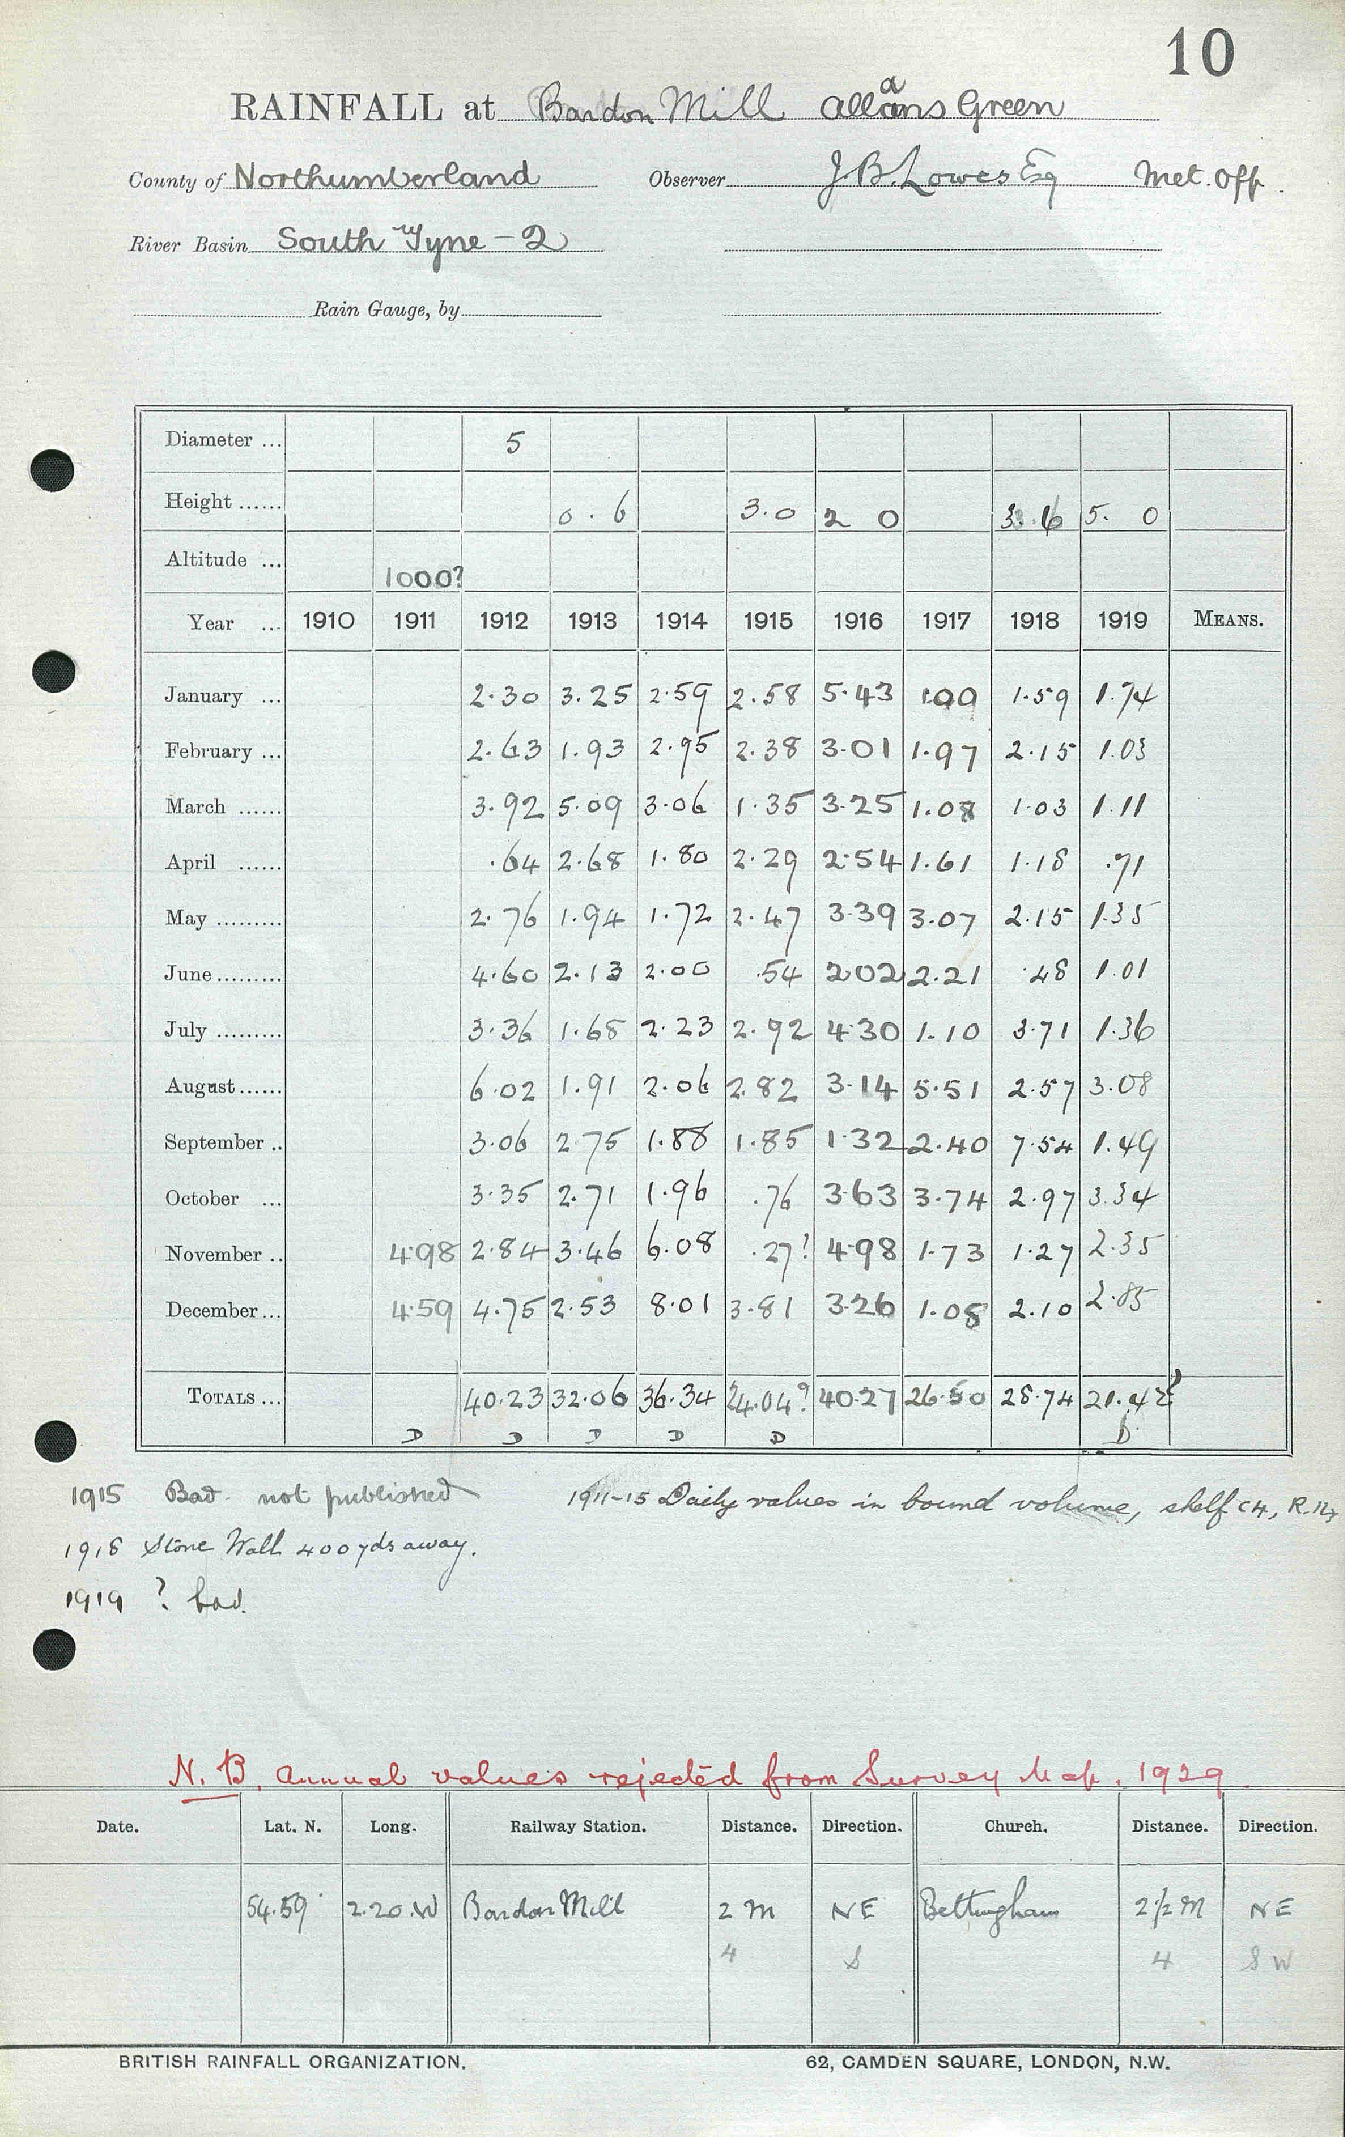 10
RAINFALL at Bardon Mill Allans Green
a
County of Northumberland Observer J. B. Lowes Esq Met. Off.
River Basin South Tyne - 2
Rain Gauge, by
Diameter ... 5
Height ...... 0.6 3.0 2 0 5. 0
Altitude ... 1000?
Year ... 1910 1911 1912 1913 1914 1915 1916 1917 1918 1919 MEANS.
January ... 2.30 3.25 2.59 2.58 5.43 1.00 1.59 1.74
February ... 2.63 1.93 2.95 2.38 3.01 1.97 2.15 1.03
March ...... 3.92 5.09 3.06 1.35 3.25 1.08 1.03 1.11
April ...... .64 2.68 1.80 2.29 2.54 1.61 1.18 .71
May ......... 2.76 1.94 1.72 2.47 3.39 3.07 2.15 1.35
June ......... 4.60 2.13 2.00 .54 2.02 2.21 .48 1.01
July ......... 3.36 1.68 2.23 2.92 4.30 1.10 3.71 1.36
August ...... 6.02 1.91 2.06 2.82 3.14 5.51 2.57 3.08
September .. 3.06 2.75 1.88 1.85 1.32 2.40 7.54 1.49
October ... 3.35 2.71 1.96 .76 3.63 3.74 2.97 3.34
November .. 4.98 2.84 3.46 6.08 .27? 4.98 1.73 1.27 2.35
December ... 4.59 4.75 2.53 8.01 3.81 3.26 1.08 2.10 2.85
TOTALS ... 40.23 32.06 36.34 24.04? 40.27 26.50 28.74 21.42?
D D D D D D
1915 Bad. not published 1911-15 Daily values in bound volume, shelf C4, R.
1918 Stone Wall 400 yds away.
1919 ? bad.
N. B. Annual values rejected from Survey Map. 1929
Date. Lat. N. Long. Railway Station. Distance. Direction. Church. Distance. Direction.
54.59 2.20.W Bardon Mill 2 M NE Beltingham 2½ M NE
4 S 4 S W
BRITISH RAINFALL ORGANIZATION. 62, CAMDEN SQUARE, LONDON, N.W.